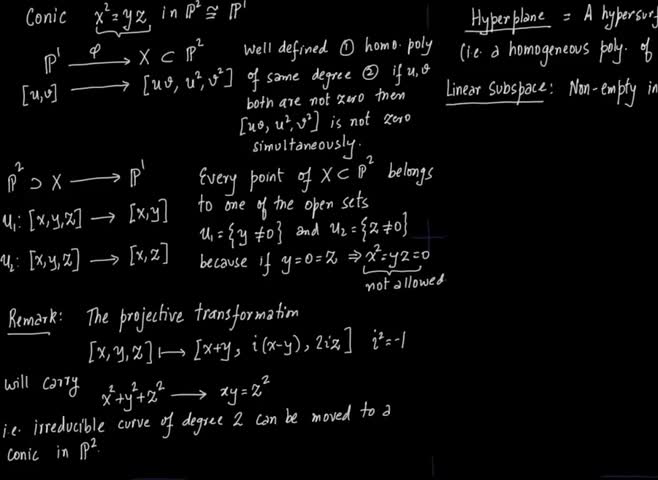 Conic x²=yz in ℙ² ≅ ℙ¹
ℙ¹ φ→ X ⊂ ℙ²
[u,v] → [uv, u², v²]
Well defined ① homo. poly
of same degree ② if u,v
both are not zero then
[uv, u², v²] is not zero
simultaneously.
ℙ² ⊃ X → ℙ¹
U₁: [x,y,z] → [x,y]
U₂: [x,y,z] → [x,z]
Every point of X ⊂ ℙ² belongs
to one of the open sets
U₁ = {y ≠ 0} and U₂ = {z ≠ 0}
because if y=0=z ⇒ x²=yz=0
not allowed
Remark: The projective transformation
[x, y, z] ↦ [x+y, i(x-y), 2iz] i²=-1
will carry x²+y²+z² → xy=z²
i.e. irreducible curve of degree 2 can be moved to a
conic in ℙ².
Hyperplane = A hypersurf
(i.e. a homogeneous poly. of
Linear Subspace: Non-empty in